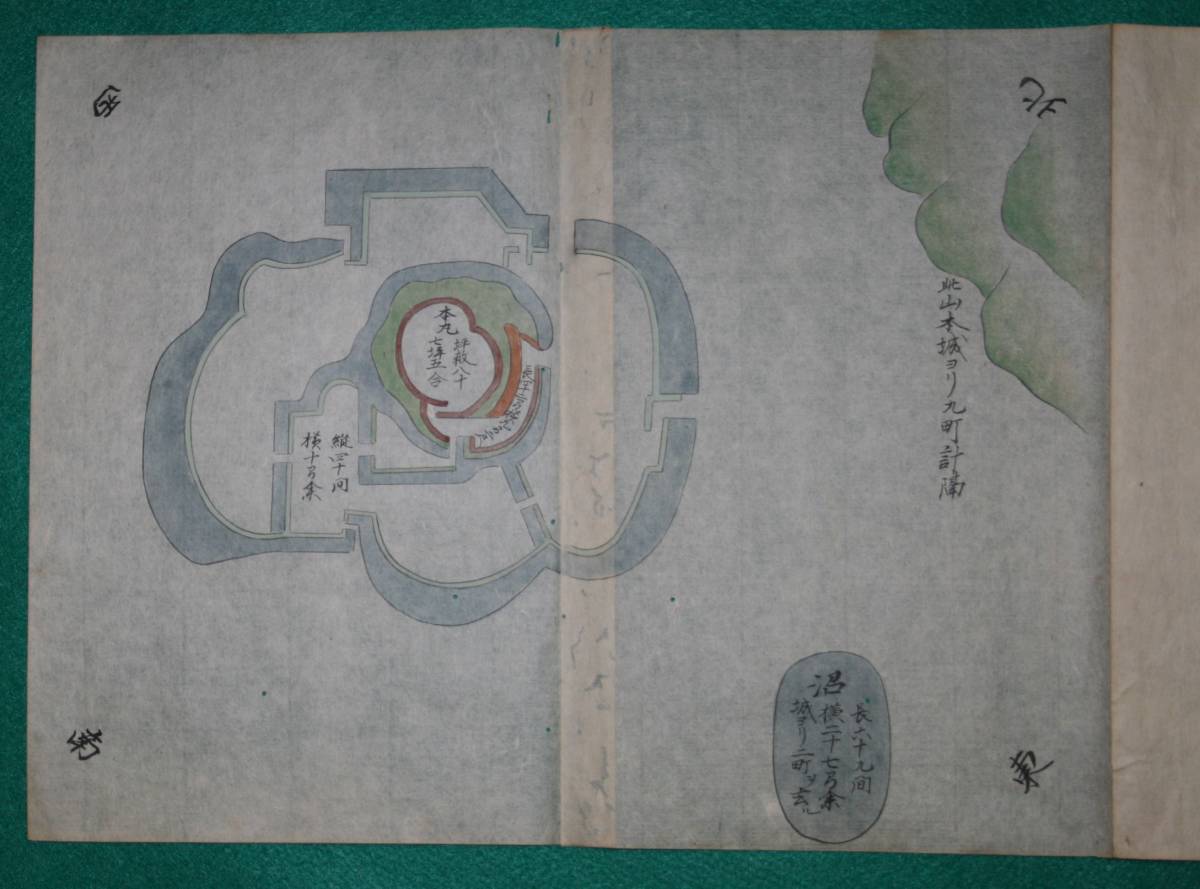 北
西
此山本城ヨリ九町計隔
本丸
坪数八十
七坪五合
縦四十間
横十間余
沼
長六十九間
横二十七間余
城ヨリ二町ヲ去ル
東
南